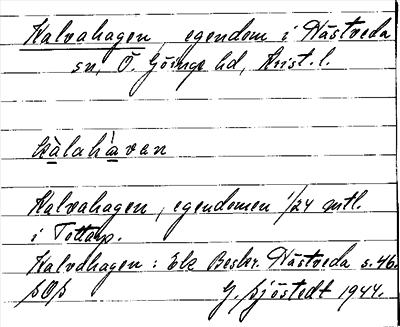 Kalvahagen, egendom i Nästveda
sn, Ö. Göinge hd, Krist. l.
Kàlahàvan
Kalvahagen, egendomen 1/24 mtl.
i Tottarp.
Kalvahagen: Ek Beskr. Nästveda s. 46.
G. Sjöstedt 1944.